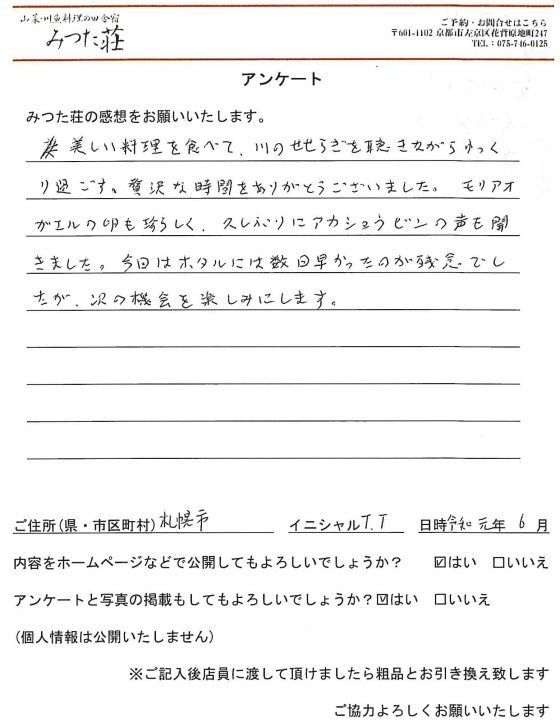 山菜・川魚料理の田舎宿
みつた荘
ご予約・お問合せはこちら
〒601-1102 京都市左京区花脊原地町247
TEL：075-746-0125
アンケート
みつた荘の感想をお願いいたします。
美しい料理を食べて、川のせせらぎを聴きながらゆっく
り過ごす。贅沢な時間をありがとうございました。 モリアオ
ガエルの卵も珍らしく、久しぶりにアカショウビンの声も聞
きました。今回はホタルには数日早かったのが残念でし
たが、次の機会を楽しみにします。
ご住所(県・市区町村) 札幌市 イニシャル T.T 日時 令和元年 6月
内容をホームページなどで公開してもよろしいでしょうか？ ☑はい □いいえ
アンケートと写真の掲載もしてもよろしいでしょうか？☑はい □いいえ
(個人情報は公開いたしません)
※ご記入後店員に渡して頂けましたら粗品とお引き換え致します
ご協力よろしくお願いいたします